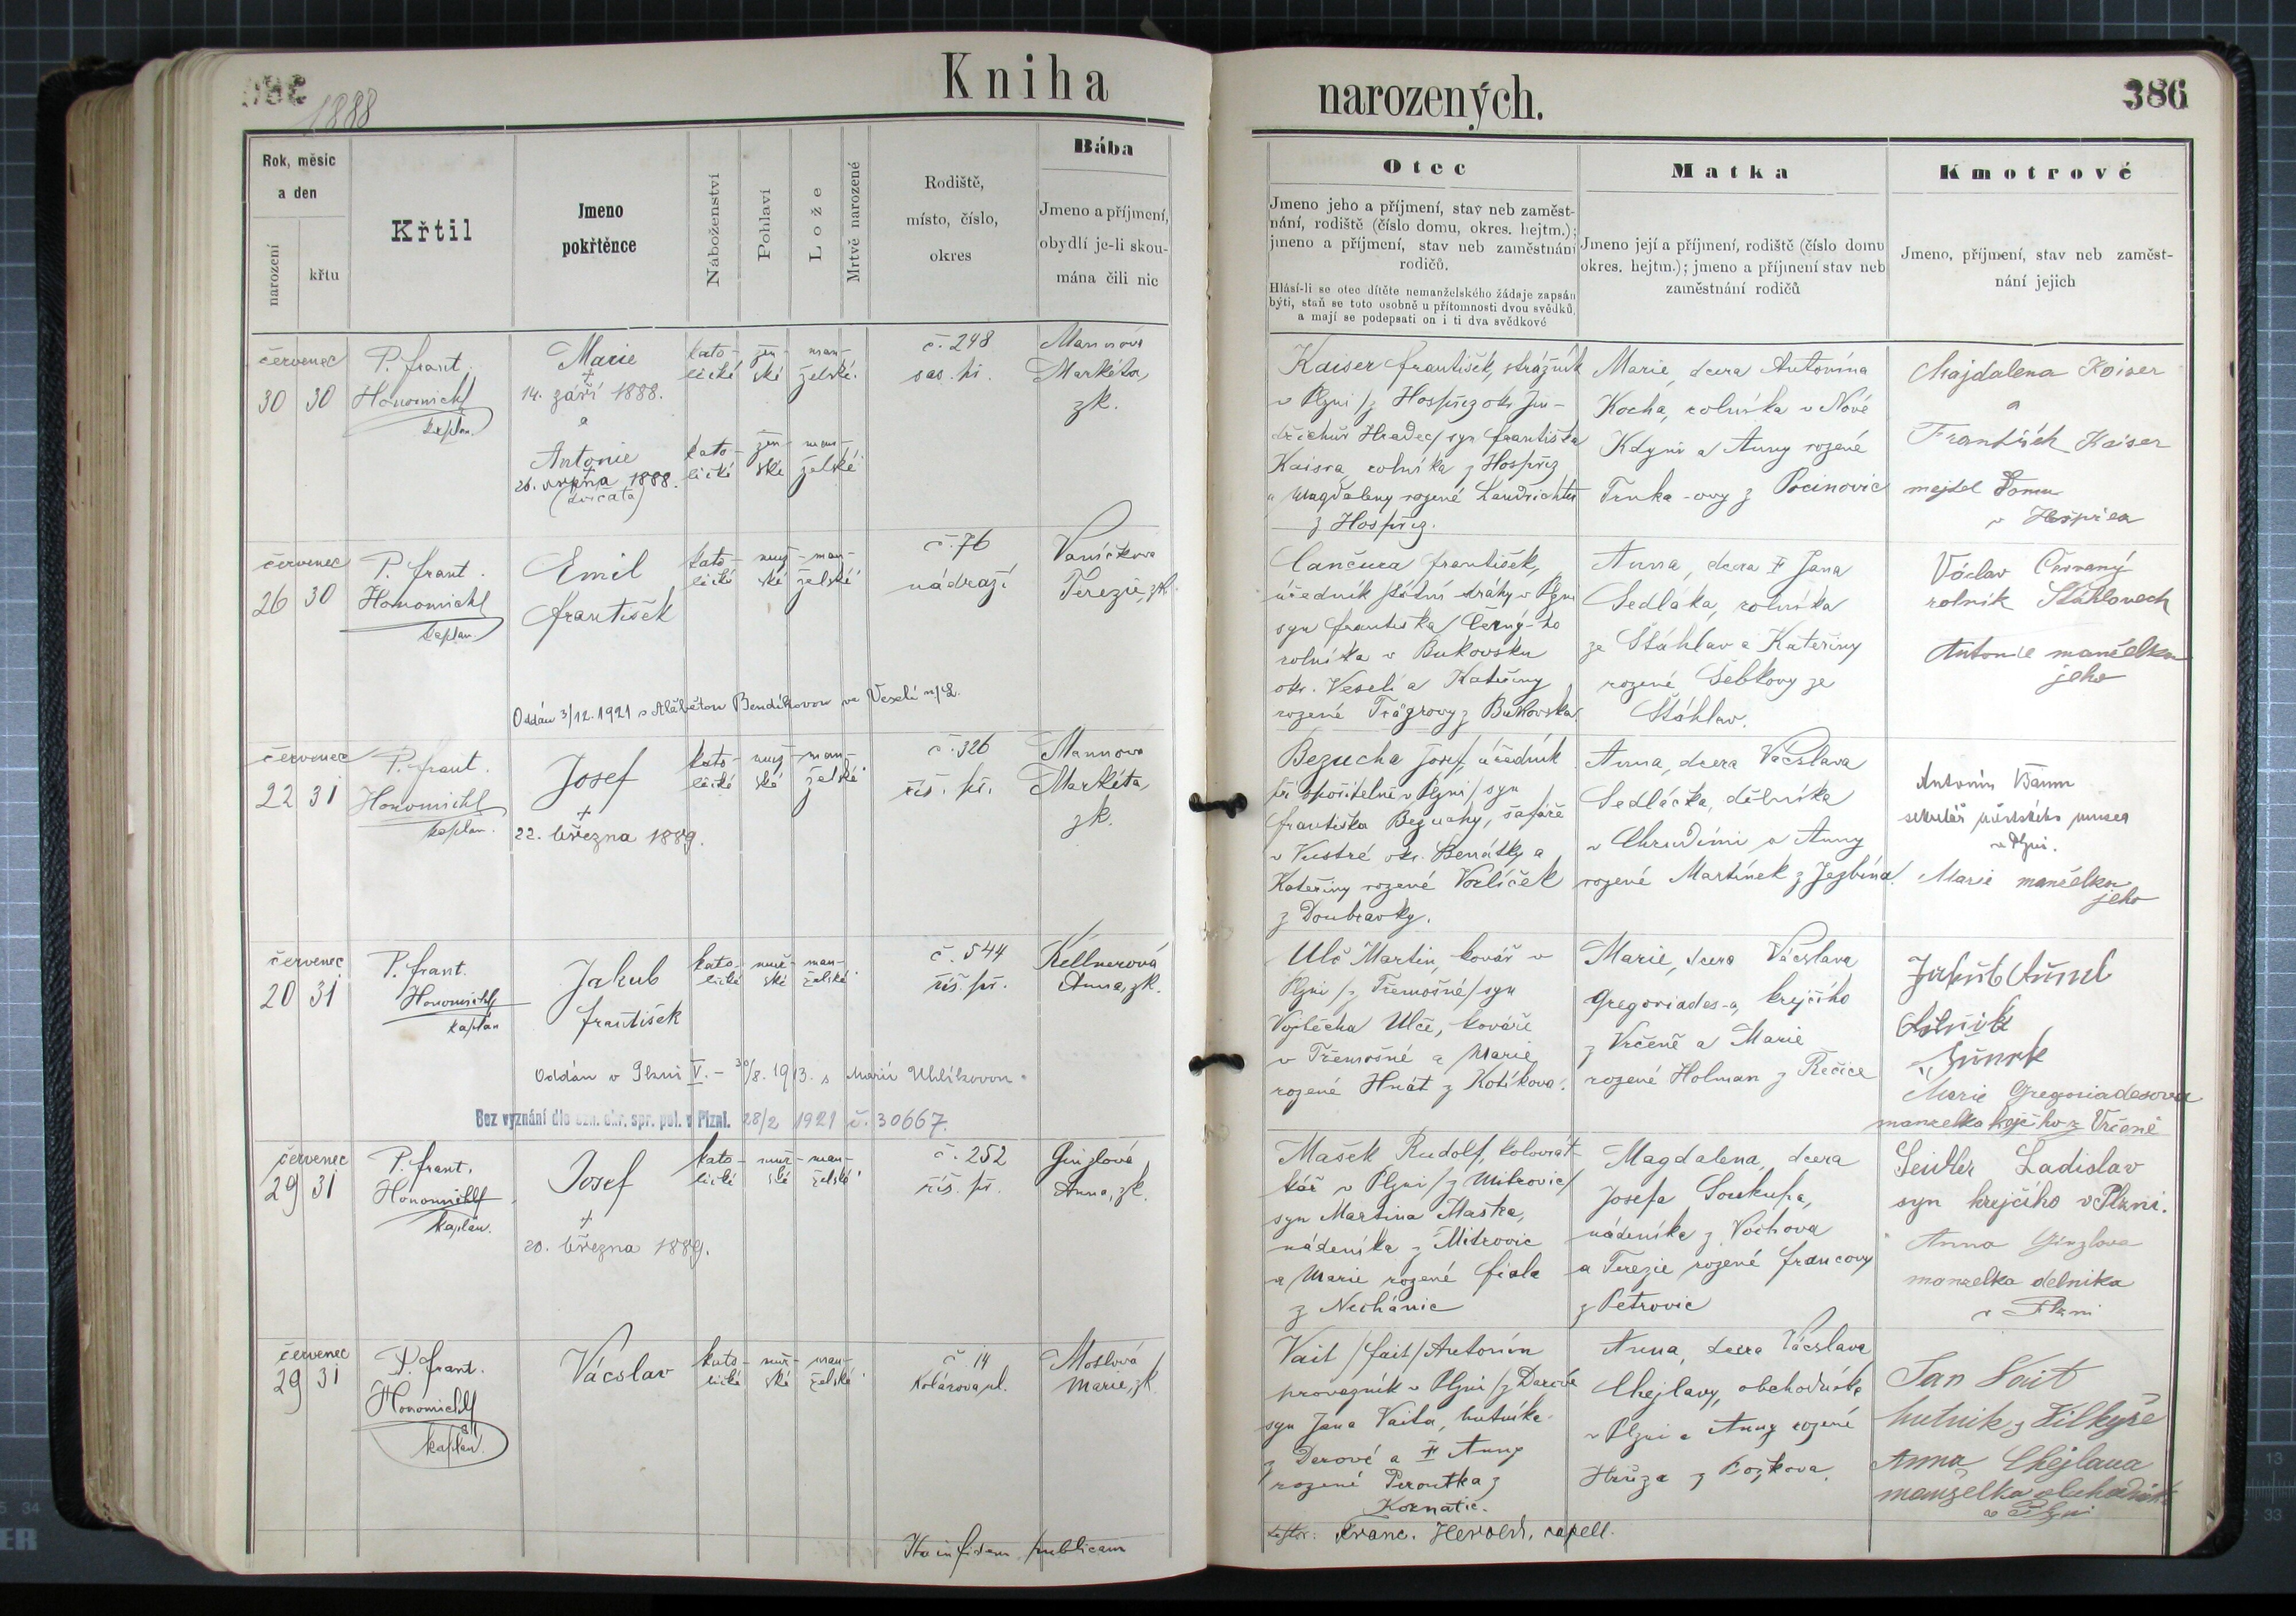 Kniha narozených.
1888
386
Rok, měsíc
a den
narození
křtu
Křtil
Jmeno
pokřtěnce
Náboženství
Pohlaví
Lože
Mrtvě narozené
Rodiště,
místo, číslo,
okres
Bába
Jmeno a příjmení,
obydlí je-li skou-
mána čili nic
Otec
Jmeno jeho a příjmení, stav neb zaměst-
nání, rodiště (číslo domu, okres. hejtm.);
jmeno a příjmení, stav neb zaměstnání
rodičů.
Hlásí-li se otec dítěte nemanželského žádaje zapsán
býti, staň se toto osobně u přítomnosti dvou svědků,
a mají se podepsati on i ti dva svědkové
Matka
Jmeno její a příjmení, rodiště (číslo domu
okres. hejtm.); jmeno a příjmení stav neb
zaměstnání rodičů
Kmotrové
Jmeno, příjmení, stav neb zaměst-
nání jejich
červenec
30 30
P. frant.
Honomichl
kaplan
Marie
+
14. září 1888.
a
Antonie
26. srpna 1888.
(dvičata)
kato- žen- man-
lické ské želské
kato- žen- man-
lické ské želské
č. 248
sas. př.
Mannova
Markéta,
zk.
Kaiser františek, strážník
v Plzni /z Hospřiz okr. Jin-
dřichův Hradec/ syn františka
Kaisra, rolníka z Hospřiz
a Magdaleny rozené Landrichter
z Hospřiz.
Marie, dcera Antonína
Kocha, rolníka v Nové
Kdyni a Anny rozené
Trnka-ovy z Pocinovic
Majdalena Kaiser
a
Frantisek Kaiser
mejtel Domu
v Hospriza
červenec
26 30
P. frant.
Honomichl
kaplan.
Emil
františek
kato- muž- man-
lické ské želské
č. 76
nádraží
Vaníčkova
Terezie, zk.
Oddán 3/12. 1921 s Alžbětou Bendíkovou ve Veselí n/L.
Cančura františek,
úředník státní dráhy v Plzni
syn františka Černý-ho
rolníka v Bukovsku
okr. Veselí a Kateřiny
rozené Trágrovy z Bukovska
Anna, dcera † Jana
Sedláka, rolníka
ze Štáhlav a Kateřiny
rozené Šebkovy ze
Štáhlav.
Václav Červaný
rolník Stáhlavech
Antonie manželka
jeho
červenec
22 31
P. frant.
Honomichl
kaplan.
Josef
+
22. března 1889.
kato- muž- man-
lické ské želské
č. 326
říš. př.
Mannova
Markéta
zk.
Bezucha Josef, úředník
při spořitelně v Plzni / syn
františka Bezuchy, šafáře
v Vustré okr. Benátky a
Kateřiny rozené Vorlíček
z Doubravky.
Anna, dcera Václava
Sedláčka, dělníka
v Chrudimi a Anny
rozené Martínek z Jezbína.
Antonín Baum
sekretář městského musea
v Plzni.
Marie manželka
jeho
červenec
20 31
P. frant.
Honomichl
kaplan
Jakub
františek
kato- muž- man-
lické ské želské
č. 544
říš. př.
Kellnerová
Anna, zk.
Oddán v Plzni V. – 30/8. 1913. s Marií Uhlíkovou.
Bez vyznání dle ozn. okr. spr. pol. v Plzni. 28/2 1921 č. 30667.
Ulč Martin, kovář v
Plzni /z Třemošné/ syn
Vojtěcha Ulče, kováře
v Třemošné a Marie
rozené Hnát z Kotíkova.
Marie, dcera Václava
Gregoriades-a, krejčího
z Vrčeně a Marie
rozené Holman z Řečice
Marie Gregoriadesova
manzelka krejčho z Vrčeně
červenec
29 31
P. frant.
Honomichl
kaplan.
Josef
+
20. března 1889.
kato- muž- man-
lické ské želské
č. 252
říš. př.
Ginzlová
Anna, zk.
Mašek Rudolf, kolovrát-
kář v Plzni /z Mitrovic/
syn Martina Maška,
nádeníka z Mitrovic
a Marie rozené fiala
z Nechánic
Magdalena, dcera
Josefa Soukupa,
nádeníka z Vochova
a Terezie rozené francovy
z Petrovic
Seidler Ladislav
syn krejčího v Plzni.
Anna Ginzlova
manzelka delnika
v Plzni
červenec
29 31
P. frant.
Honomichl
kaplan.
Vácslav
kato- muž- man-
lické ské želské
č. 14
Kolárova ul.
Moslová
Marie, zk.
Vait /fait/ Antonín
provazník v Plzni /z Darové
syn Jana Vaita, hutníka
z Darové a † Anny
rozené Peroutka z
Kornatic.
Anna, dcera Vácslava
Chejlavy, obchodníka
v Plzni a Anny rozené
Hrůza z Božkova.
Jan Vait
hutnik z
Anna Chejlava
manzelka obchodníka
v Plzni
Ita in fidem publicam
testor: Franc. Herold, capell.